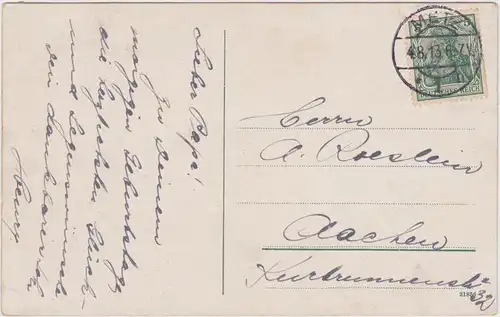 Lieber Papa!
Zu Deinem
morgigen Geburtstage
die herzlichsten Glück-
und Segenswünsche
Dein dankbarer Sohn
Henry
METZ
4.8.13.6-7V
DEUTSCHES REICH
Herrn
A. Roeslein
Aachen
Kurbrunnenstr
32